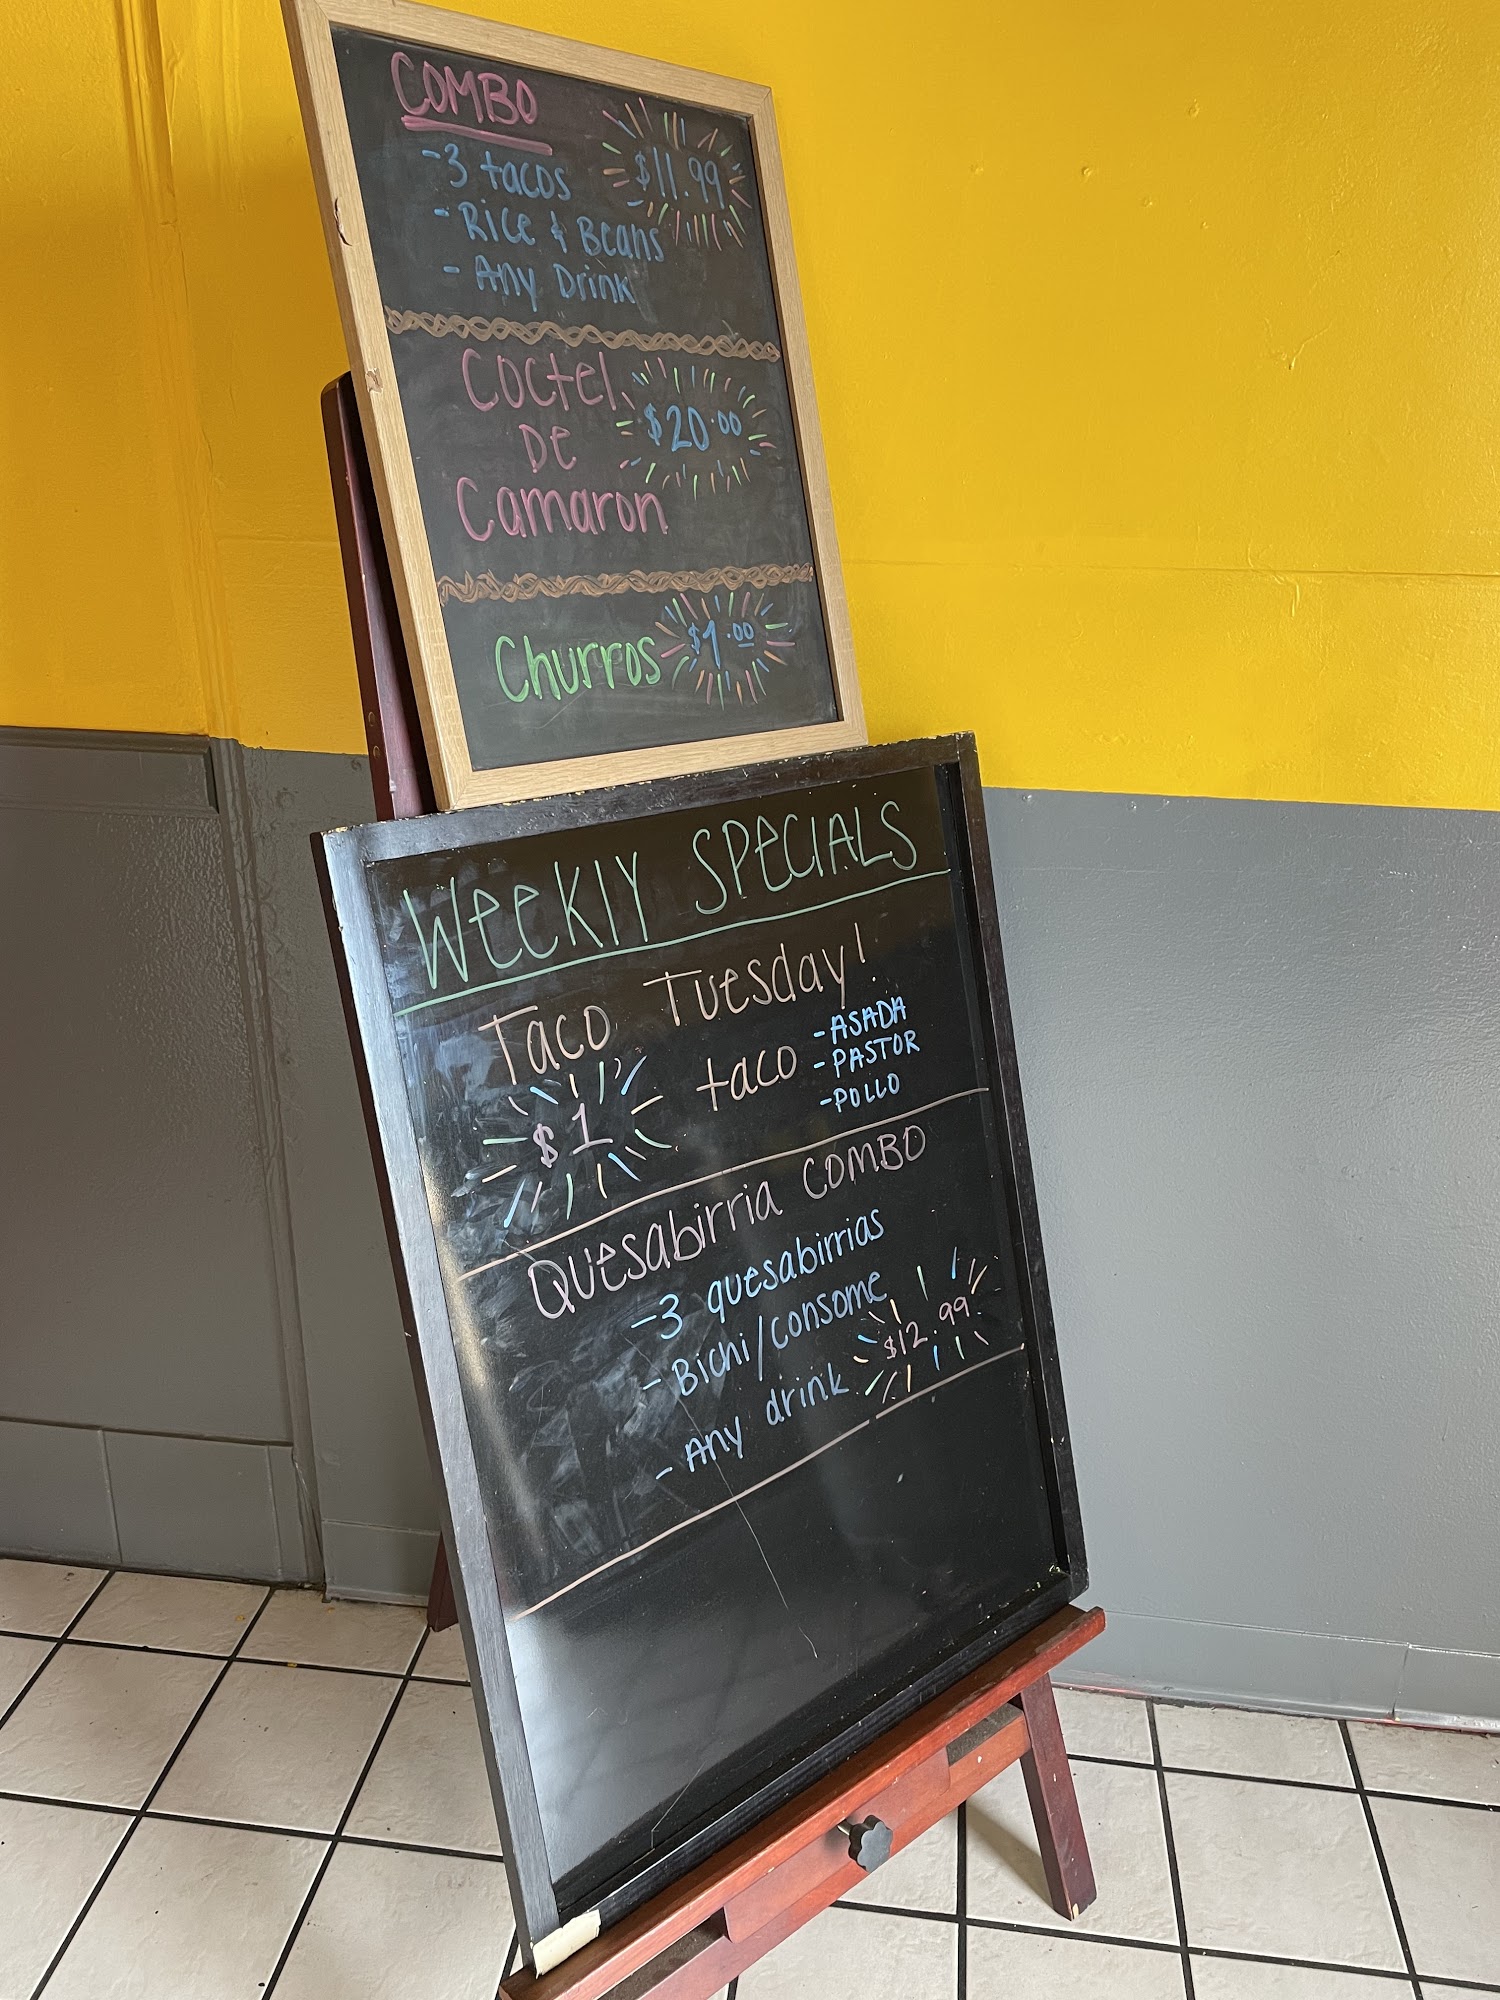 COMBO
-3 tacos $11.99
-Rice & Beans
-Any Drink
Coctel
DE $20.00
Camaron
Churros $1.00
WEEKlY SPECIALS
Taco Tuesday!
$1 taco -ASADA
-PASTOR
-POLLO
Quesabirria COMBO
-3 quesabirrias
-Bichi/consome
-Any drink $12.99